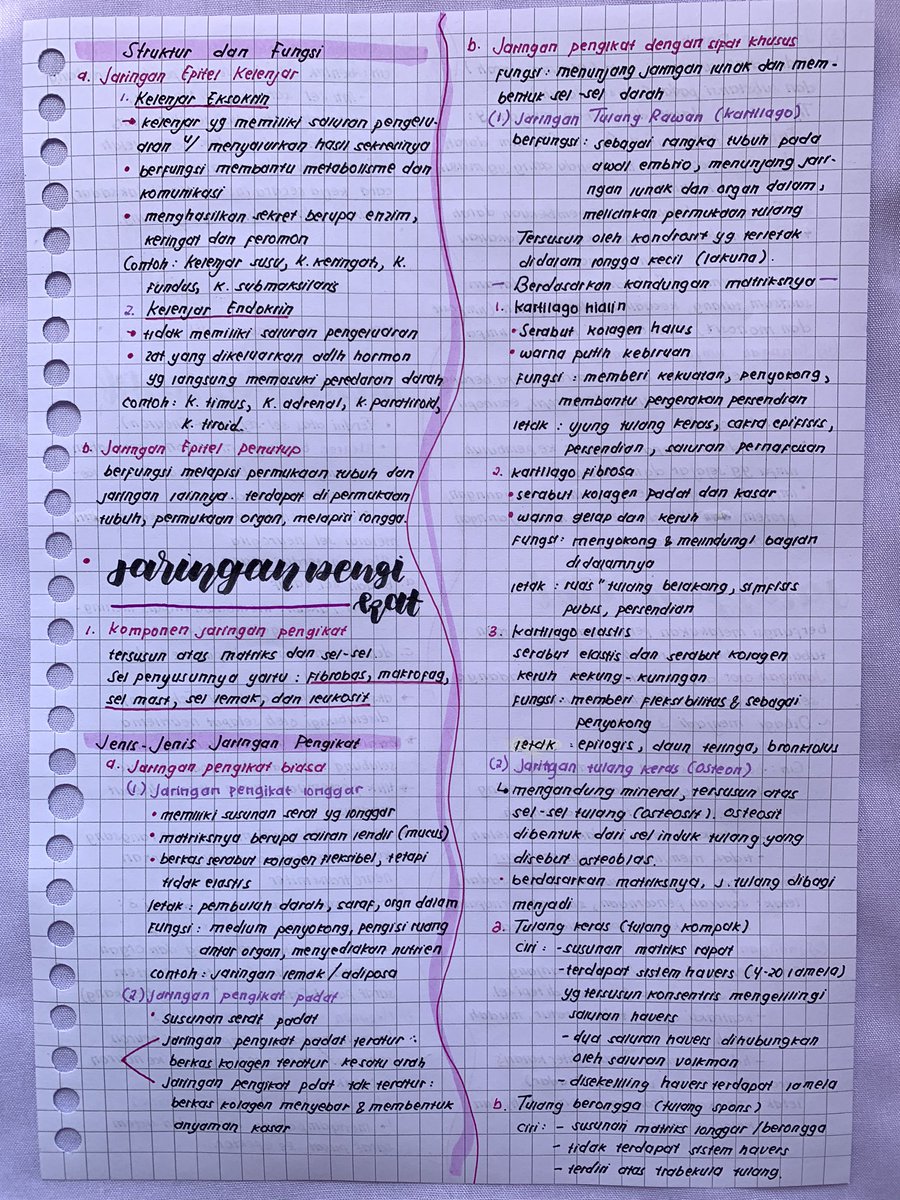 Struktur dan Fungsi
a. Jaringan Epitel Kelenjar
1. Kelenjar Eksokrin
→ kelenjar yg memiliki saluran pengelu-
aran u/ menyalurkan hasil sekresinya
• berfungsi membantu metabolisme dan
komunikasi
• menghasilkan sekret berupa enzim,
keringat dan feromon
Contoh: kelenjar susu, k. keringat, k.
Fundus, k. submaksilaris
2. Kelenjar Endokrin
→ tidak memiliki saluran pengeluaran
• zat yang dikeluarkan adlh hormon
yg langsung memasuki peredaran darah
contoh: k. timus, k. adrenal, k. paratiroid,
k. tiroid.
b. Jaringan Epitel penutup
berfungsi melapisi permukaan tubuh dan
jaringan lainnya. terdapat di permukaan
tubuh, permukaan organ, melapisi rongga.
• Jaringan pengi
kat
1. komponen jaringan pengikat
tersusun atas matriks dan sel-sel
sel penyusunnya yaitu: fibrobas, makrofag,
sel mast, sel lemak, dan leukosit
Jenis-Jenis Jaringan Pengikat
a. Jaringan pengikat biasa
(1) Jaringan pengikat longgar
• memiliki susunan serat yg longgar
• matriksnya berupa cairan lendir (mucus)
• berkas serabut kolagen fleksibel, tetapi
tidak elastis
letak: pembuluh darah, saraf, orgn dalam
Fungsi: medium penyokong, pengisi ruang
antar organ, menyediakan nutrien
contoh: jaringan lemak / adiposa
(2) Jaringan pengikat padat
• susunan serat padat
Jaringan pengikat padat teratur:
berkas kolagen teratur kesatu arah
Jaringan pengikat pdat tak teratur:
berkas kolagen menyebar & membentuk
anyaman kasar
b. Jaringan pengikat dengan sipat khusus
Fungsi: menunjang jaringan lunak dan mem-
bentuk sel-sel darah
(1) Jaringan Tulang Rawan (kartilago)
berfungsi: sebagai rangka tubuh pada
awal embrio, menunjang jari-
ngan lunak dan organ dalam,
melicinkan permukaan tulang
Tersusun oleh kondrosit yg terletak
didalam rongga kecil (lakuna).
— Berdasarkan kandungan matriksnya —
1. kartilago hialin
• Serabut kolagen halus
• warna putih kebiruan
Fungsi: memberi kekuatan, penyokong,
membantu pergerakan persendian
letak: ujung tulang keras, cakra epifisis,
persendian, saluran pernafasan
2. kartilago fibrosa
• serabut kolagen padat dan kasar
• warna gelap dan keruh
Fungsi: menyokong & melindungi bagian
didalamnya
letak: ruas" tulang belakang, simfisis
pubis, persendian
3. kartilago elastis
serabut elastis dan serabut kolagen
keruh kekung-kuningan
Fungsi: memberi fleksibilitas & sebagai
penyokong
letak: epilogis, daun telinga, bronkiolus
(2) Jaringan tulang keras (osteon)
↳ mengandung mineral, tersusun atas
sel-sel tulang (osteosit). osteosit
dibentuk dari sel induk tulang yang
disebut osteoblas.
• berdasarkan matriksnya, j. tulang dibagi
menjadi
a. Tulang keras (tulang kompak)
Ciri: -susunan matriks rapat
-terdapat sistem havers (4-20 lamela)
yg tersusun konsentris mengelilingi
saluran havers
-dua saluran havers dihubungkan
oleh saluran volkman
-disekeliling havers terdapat lamela
b. Tulang berongga (tulang spons)
Ciri: - susunan matriks longgar / berongga
- tidak terdapat sistem havers
- terdiri atas trabekula tulang.